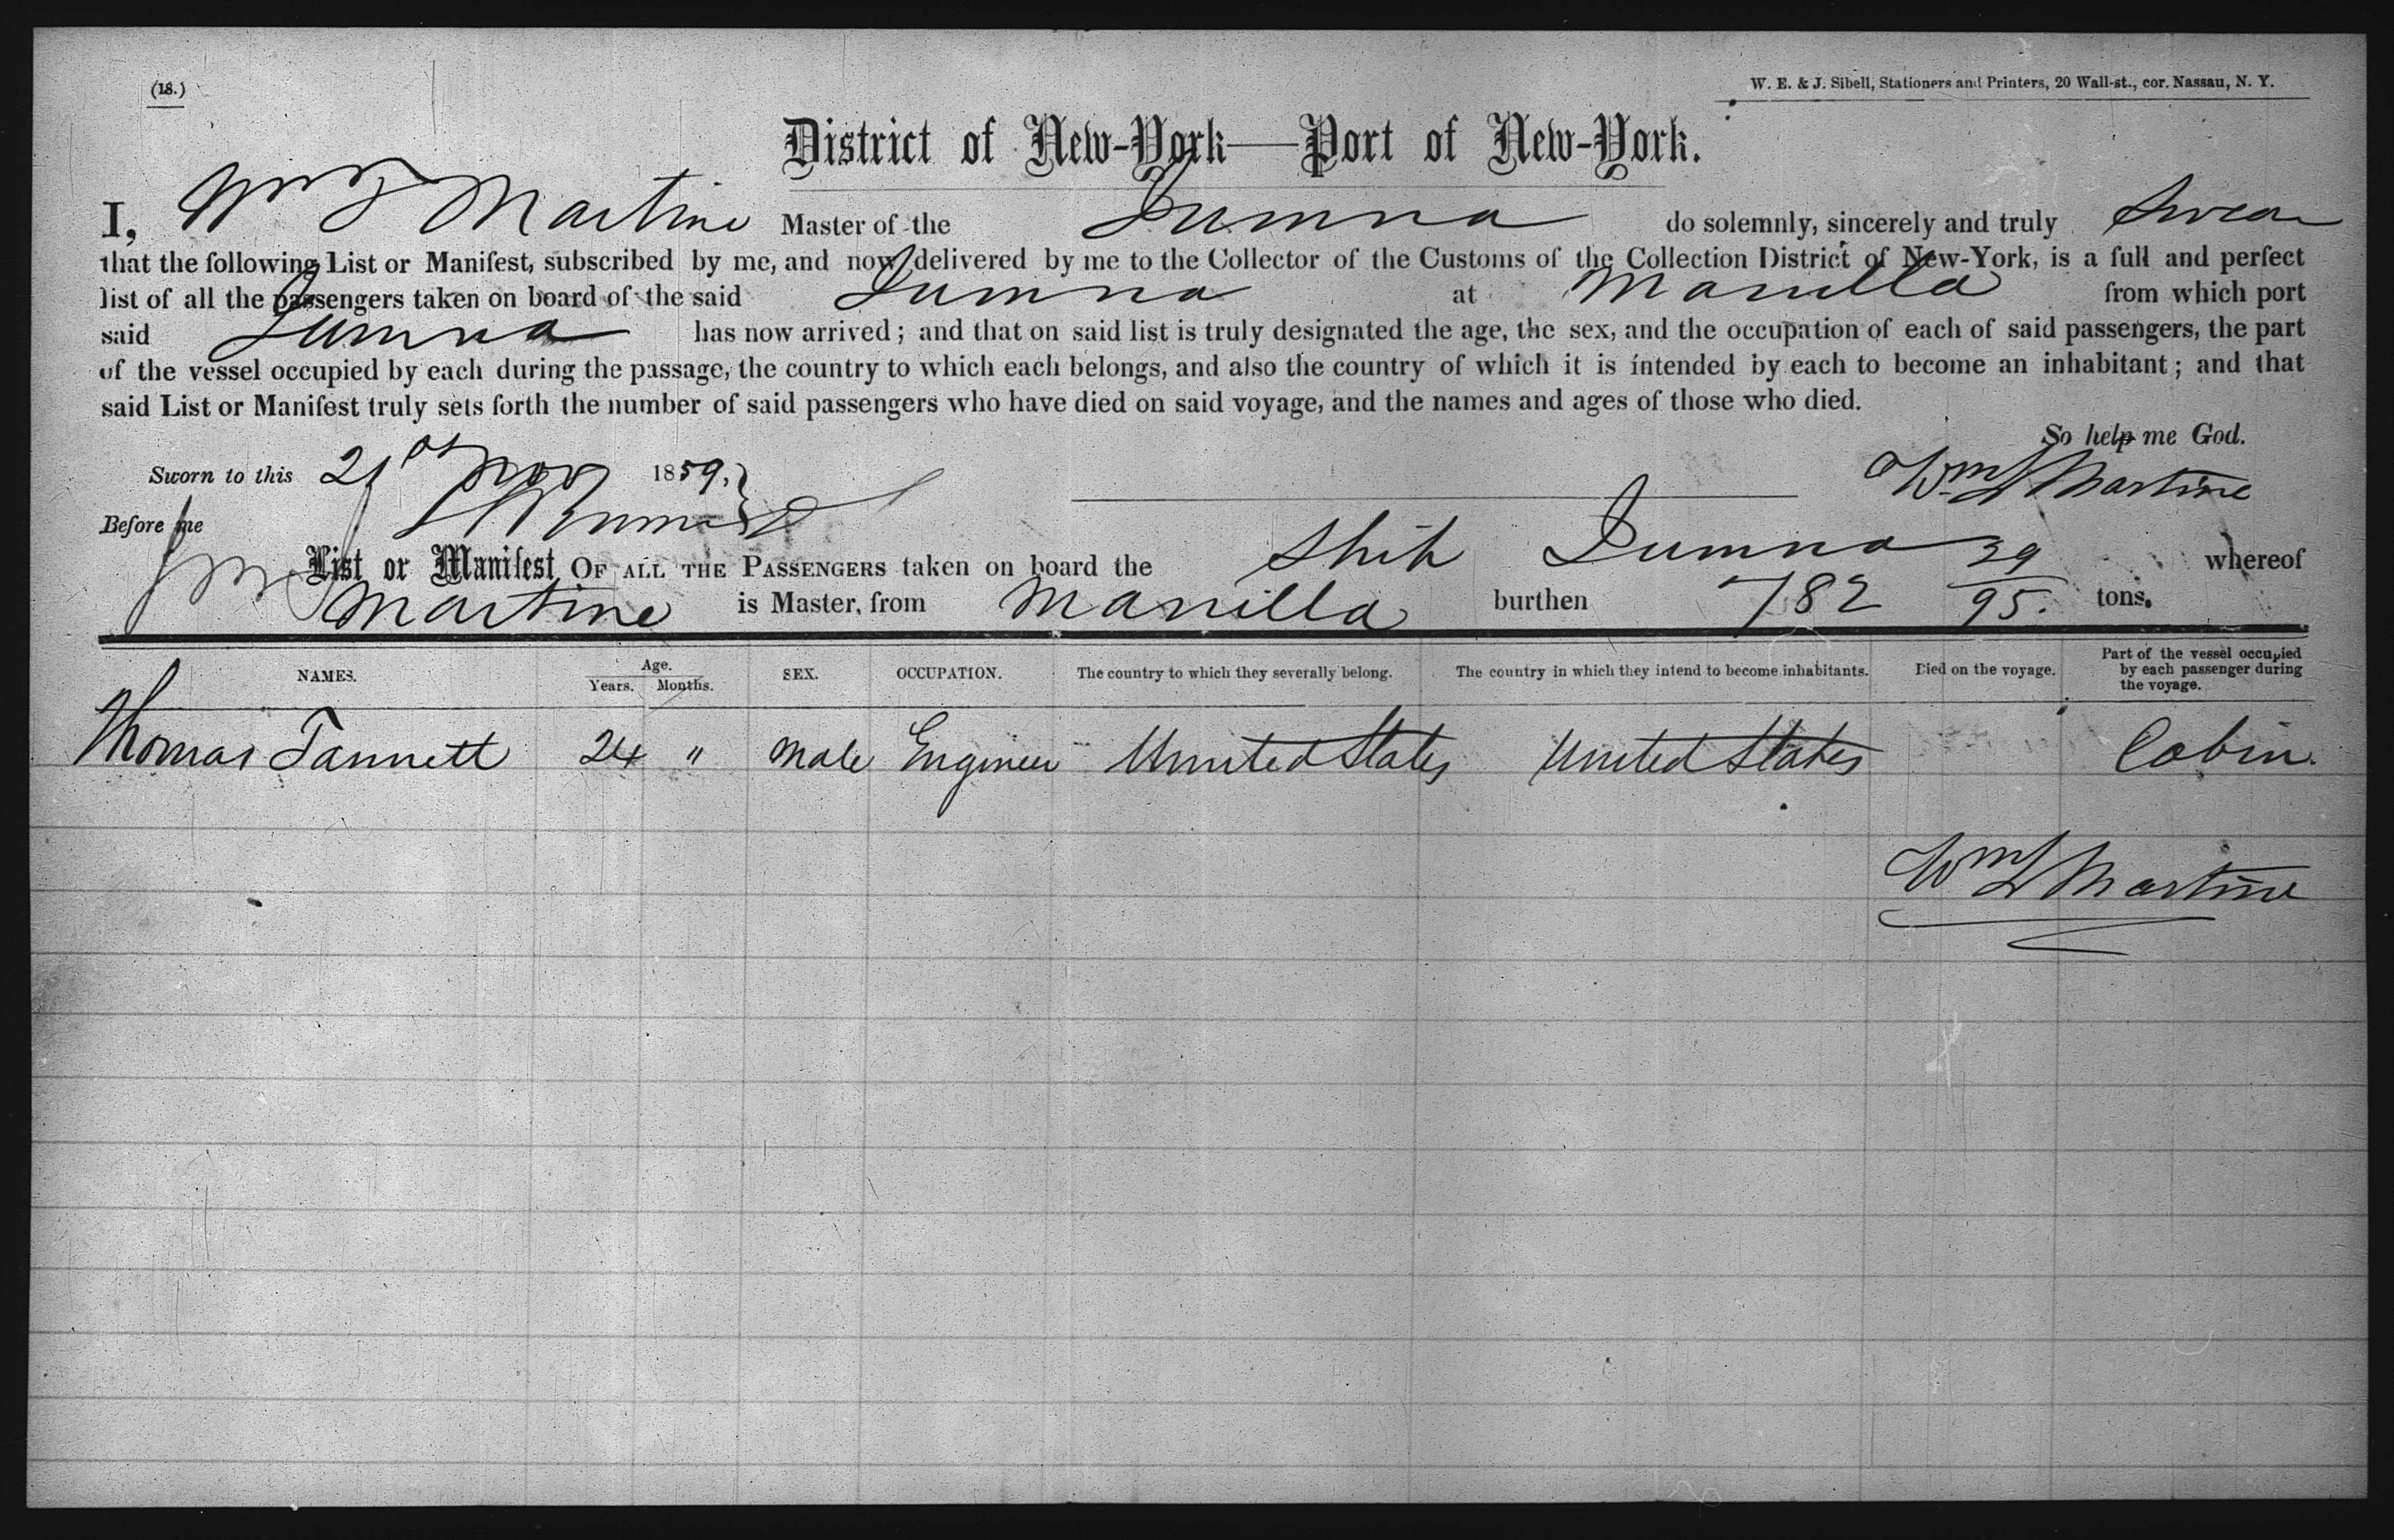 (18.)
W. E. & J. Sibell, Stationers and Printers, 20 Wall-st., cor. Nassau, N. Y.
District of New-York—Port of New-York.
I, Wm L Martine Master of the Jumna do solemnly, sincerely and truly Swear
that the following List or Manifest, subscribed by me, and now delivered by me to the Collector of the Customs of the Collection District of New-York, is a full and perfect
list of all the passengers taken on board of the said Jumna at Manilla from which port
said Jumna has now arrived; and that on said list is truly designated the age, the sex, and the occupation of each of said passengers, the part
of the vessel occupied by each during the passage, the country to which each belongs, and also the country of which it is intended by each to become an inhabitant; and that
said List or Manifest truly sets forth the number of said passengers who have died on said voyage, and the names and ages of those who died.
So help me God.
Sworn to this 21st Nov 1859, Wm L Martine
Before me
List or Manifest OF ALL THE PASSENGERS taken on board the Ship Jumna whereof
Martine is Master, from Manilla burthen 782 39/95 tons.
NAMES. Age. Years. Months. SEX. OCCUPATION. The country to which they severally belong. The country in which they intend to become inhabitants. Died on the voyage. Part of the vessel occupied by each passenger during the voyage.
Thomas Tannett 24 " Male Engineer United States United States Cabin
Wm L Martine